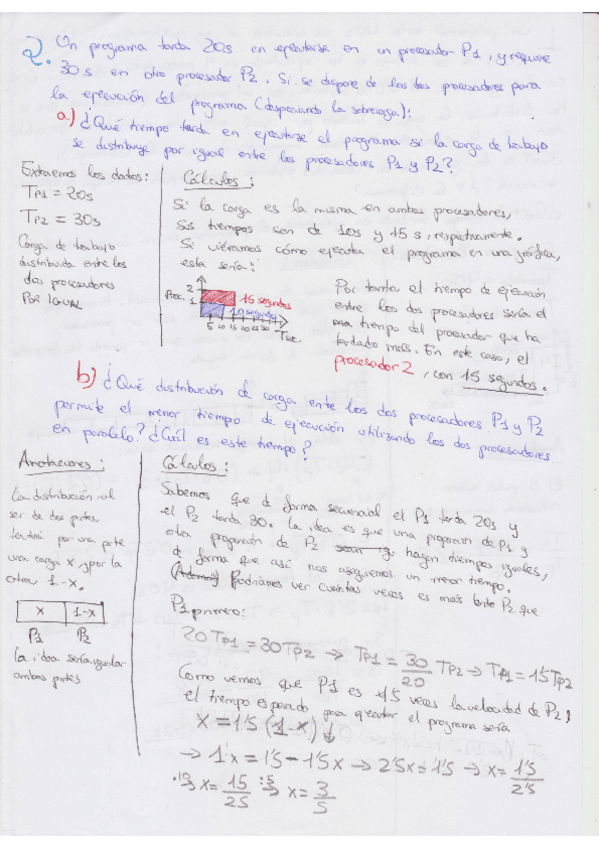 2. Un programa tarda 20s en ejecutarse en un procesador P1, y requiere
30 s en otro procesador P2. Si se dispone de los dos procesadores para
la ejecución del programa (despreciando la sobrecarga):
a) ¿Qué tiempo tarda en ejecutarse el programa si la carga de trabajo
se distribuye por igual entre los procesadores P1 y P2?
Extraemos los datos:
TP1 = 20s
TP2 = 30s
Carga de trabajo
distribuida entre los
dos procesadores
POR IGUAL
Cálculos:
Si la carga es la misma en ambos procesadores,
sus tiempos son de 10s y 15 s, respectivamente.
Si viéramos cómo ejecuta el programa en una gráfica,
esta sería:
Proc.
2
1
15 segundos
10 segundos
5 10 15 20 25 30
Tsec.
Por tanto, el tiempo de ejecución
entre los dos procesadores sería el
tiempo del procesador que ha
tardado más. En este caso, el
procesador 2, con 15 segundos.
b) ¿Qué distribución de carga entre los dos procesadores P1 y P2
permite el menor tiempo de ejecución utilizando los dos procesadores
en paralelo? ¿Cuál es este tiempo?
Anotaciones:
La distribución al
ser de dos partes,
tendrá por una parte
una carga x, y por la
otra, 1-x.
x 1-x
P1 P2
La idea sería igualar
ambas partes
Cálculos:
Sabemos que de forma secuencial el P1 tarda 20s y
el P2 tarda 30. La idea es que una proporción de P1 y
otra proporción de P2 hagan tiempos iguales,
de forma que así nos aseguremos un menor tiempo.
Podríamos ver cuántas veces es más lento P2 que
P1 primero:
20TP1 = 30TP2 → TP1 = 30/20 TP2 → TP1 = 1'5TP2
Como vemos que P1 es 1'5 veces la velocidad de P2,
el tiempo esperado para ejecutar el programa sería
x = 1'5 (1-x)
→ 1x = 1'5 - 1'5x → 2'5x = 1'5 → x = 1'5/2'5
x = 15/25 :5 → x = 3/5